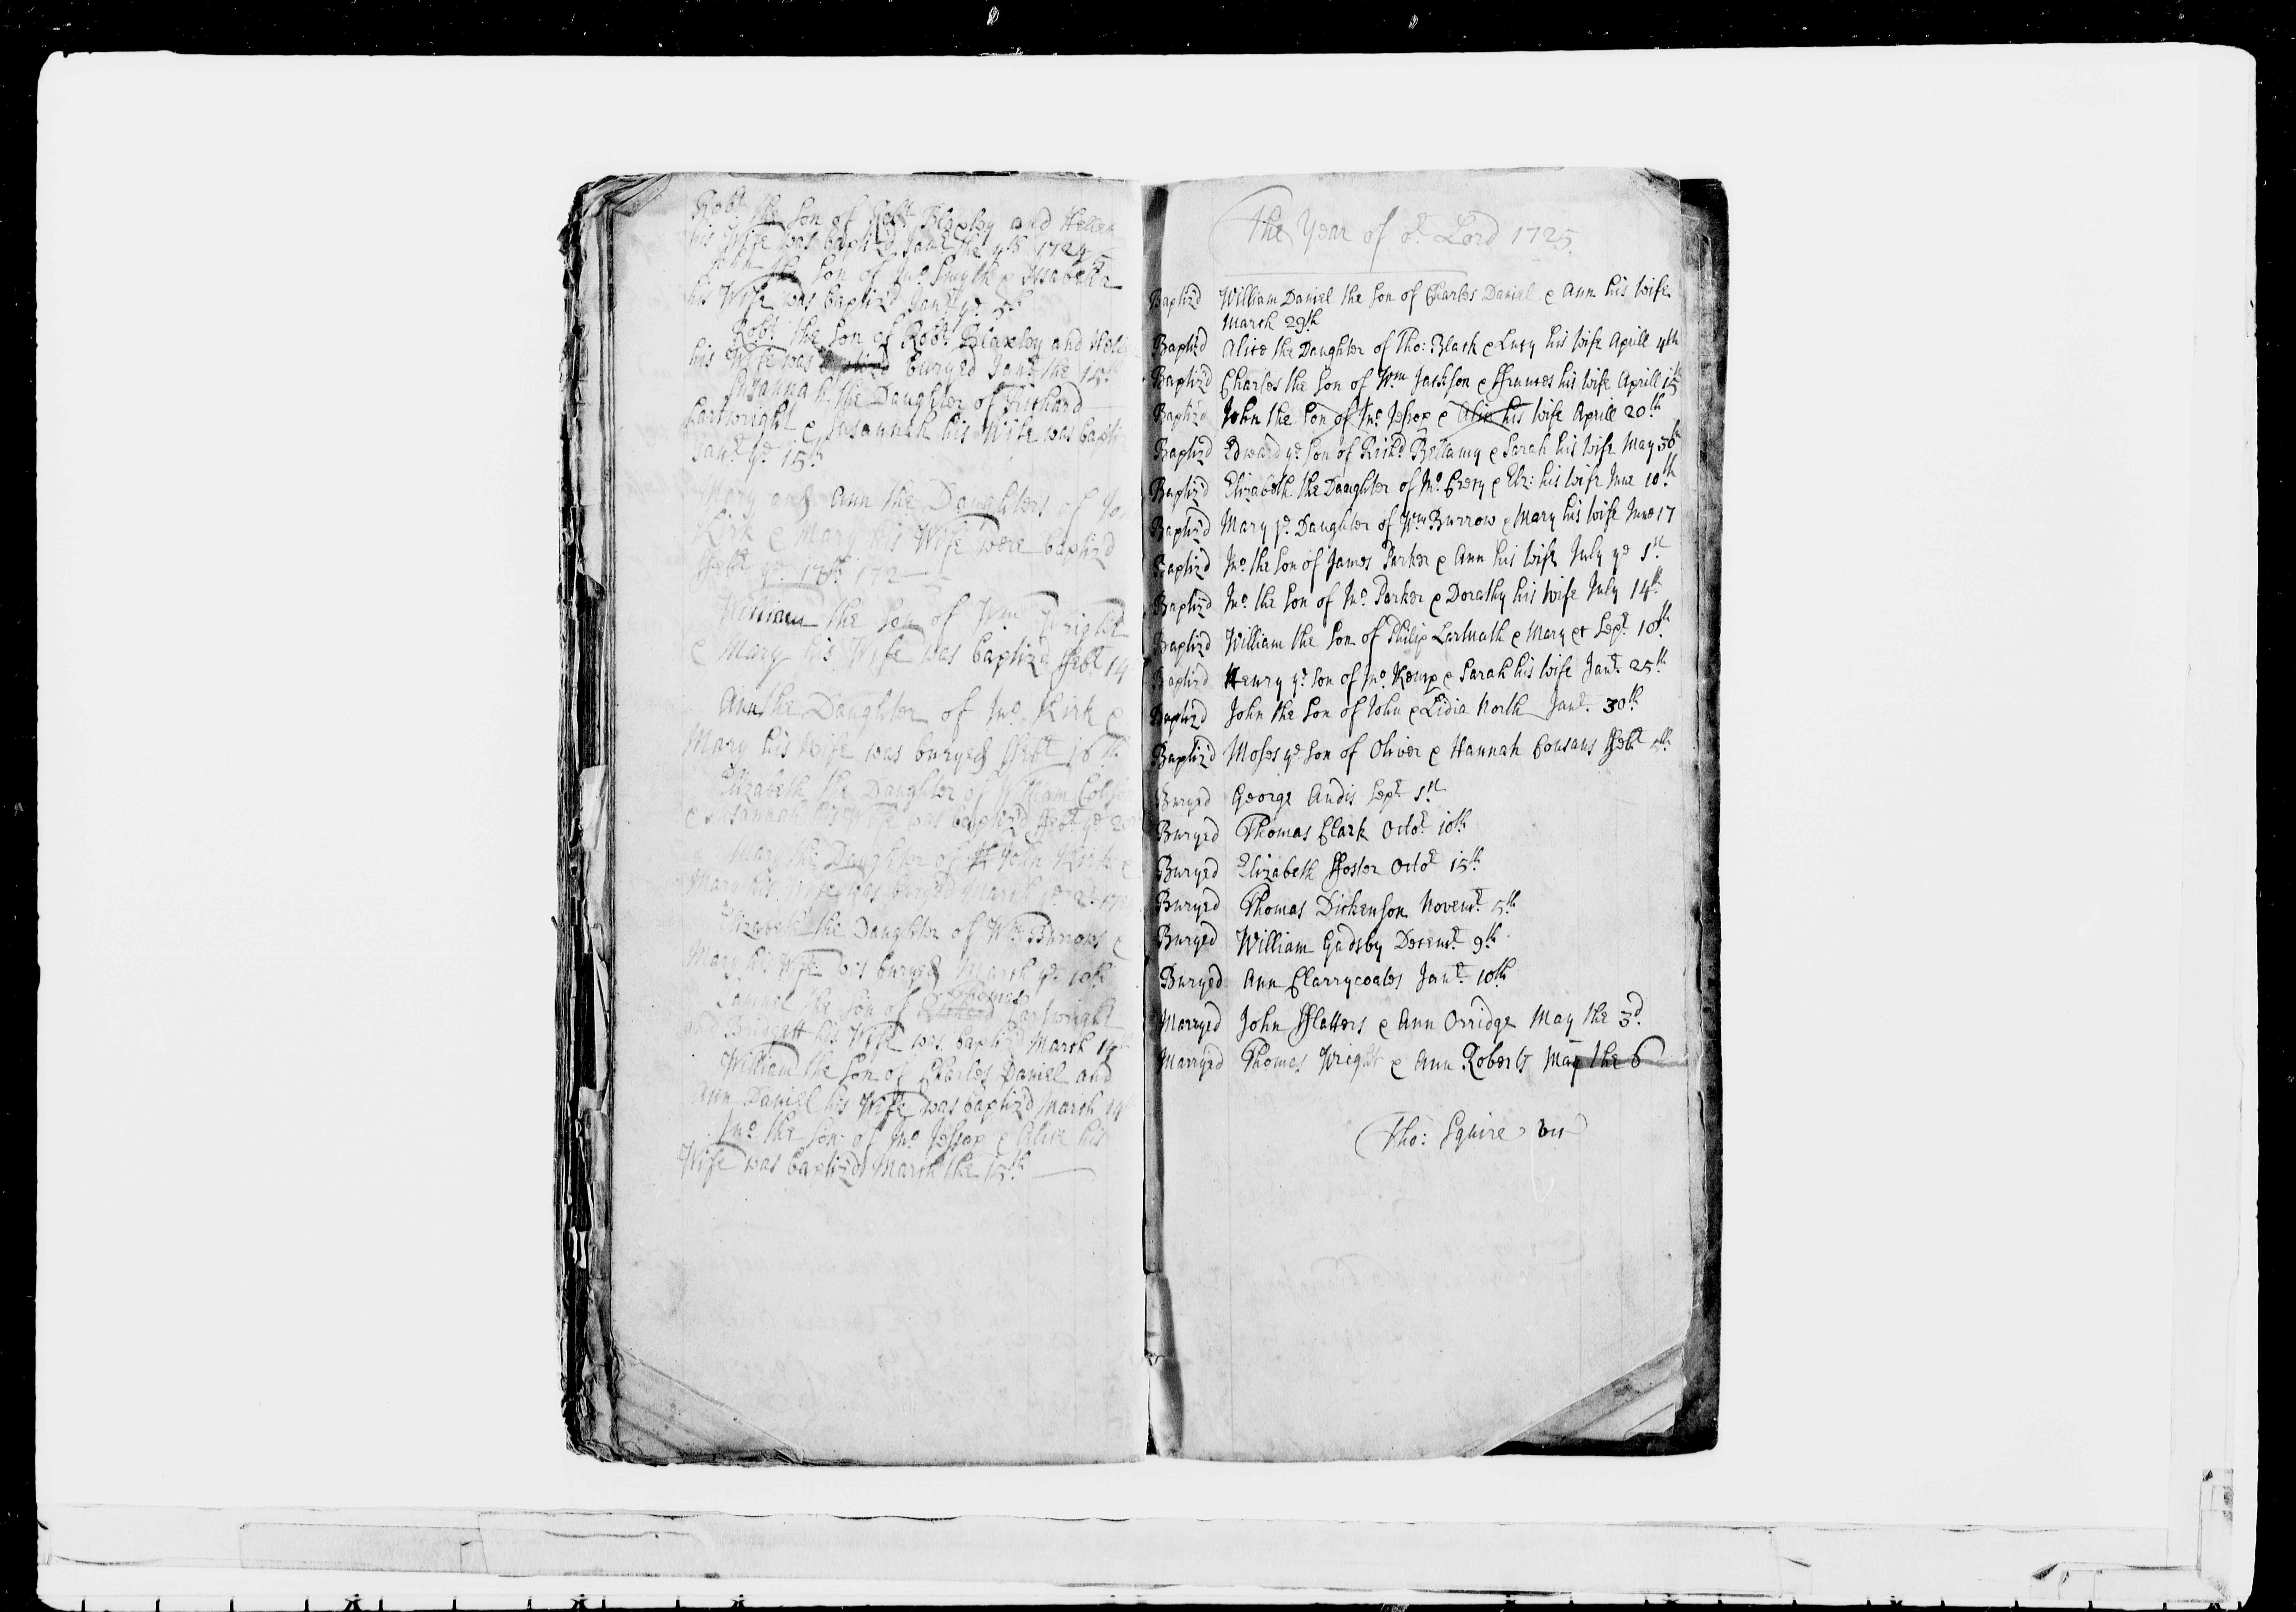 Robt. the Son of Robt. Blaxley and Hellen
his Wife was baptiz'd Janr. the 4th 1724/5
John the Son of Jno. Smyth & Issabella
his Wife was baptiz'd Janr. ye. 5th
Robt. the Son of Robt. Blaxley and Hellen
his Wife was buryed Janr. the 15th
Susannah the Daughter of Richard
Cartwright & Susannah his Wife was bapti
Janr. ye. 15th
Mary and Ann the Daughters of Jo
Kirk & Mary his Wife were baptiz'd
ffebr. ye. 172
William the Son of Wm Wright
& Mary his Wife was baptiz'd ffebr. 14
Ann the Daughter of Jno. Kirk &
Mary his Wife was buryed ffebr. 16th
Elizabeth the Daughter of William
& Susannah his Wife was baptiz'd ffebr. ye. 2
Mary the Daughter of John Kirk &
Mary his Wife was buryed March ye. 2d. 172
Elizabeth the Daughter of Wm Burrows &
Mary his Wife was buryed March ye. 10th
Thomas
Samuel the Son of Richard Cartwright
and Bridgett his Wife was baptiz'd March 14th
William the Son of Charles Daniel and
Ann Daniel his Wife was baptiz'd March 14
Jno. the Son of Jno. Jessop & Alice his
Wife was baptiz'd March the 15th
The Year of or. Lord 1725.
Baptiz'd William Daniel the Son of Charles Daniel & Ann his Wife
March 29th
Baptiz'd Alice the Daughter of Tho: Black & Lucy his Wife Aprill 4th
Baptiz'd Charles the Son of Wm Jackson & ffrances his Wife Aprill 15th
Baptiz'd John the Son of Jno. Jessop & Alice his Wife Aprill 20th
Baptiz'd Edward ye. Son of Richd. Bellamy & Sarah his Wife May 30th
Baptiz'd Elizabeth the Daughter of Jno. Crecy & Elz: his Wife June 10th
Baptiz'd Mary ye. Daughter of Wm Burrow & Mary his Wife June 17
Baptiz'd Jno. the Son of James Parker & Ann his Wife July ye 1st
Baptiz'd Jno. the Son of Jno. Parker & Dorathy his Wife July 14th
Baptiz'd William the Son of Philip & Mary Sepr. 10th
Baptiz'd Henry ye. Son of Jno. Kemp & Sarah his Wife Janr. 25th
Baptiz'd John the Son of John & Lidia North Janr. 30th
Baptiz'd Moses ye. Son of Oliver & Hannah Cousans ffebr. 5th
Buryed George Andis Sepr. 1st
Buryed Thomas Clark Octor. 10th
Buryed Elizabeth ffoster Octor. 15th
Buryed Thomas Dickenson Novemr. 5th
Buryed William Gadsby Decemr. 9th
Buryed Ann Clarrycoates Janr. 10th
Marryed John fflatters & Ann Orridge May the 3d.
Marryed Thomas Wright & Ann Roberts May the 6
Tho: Squire